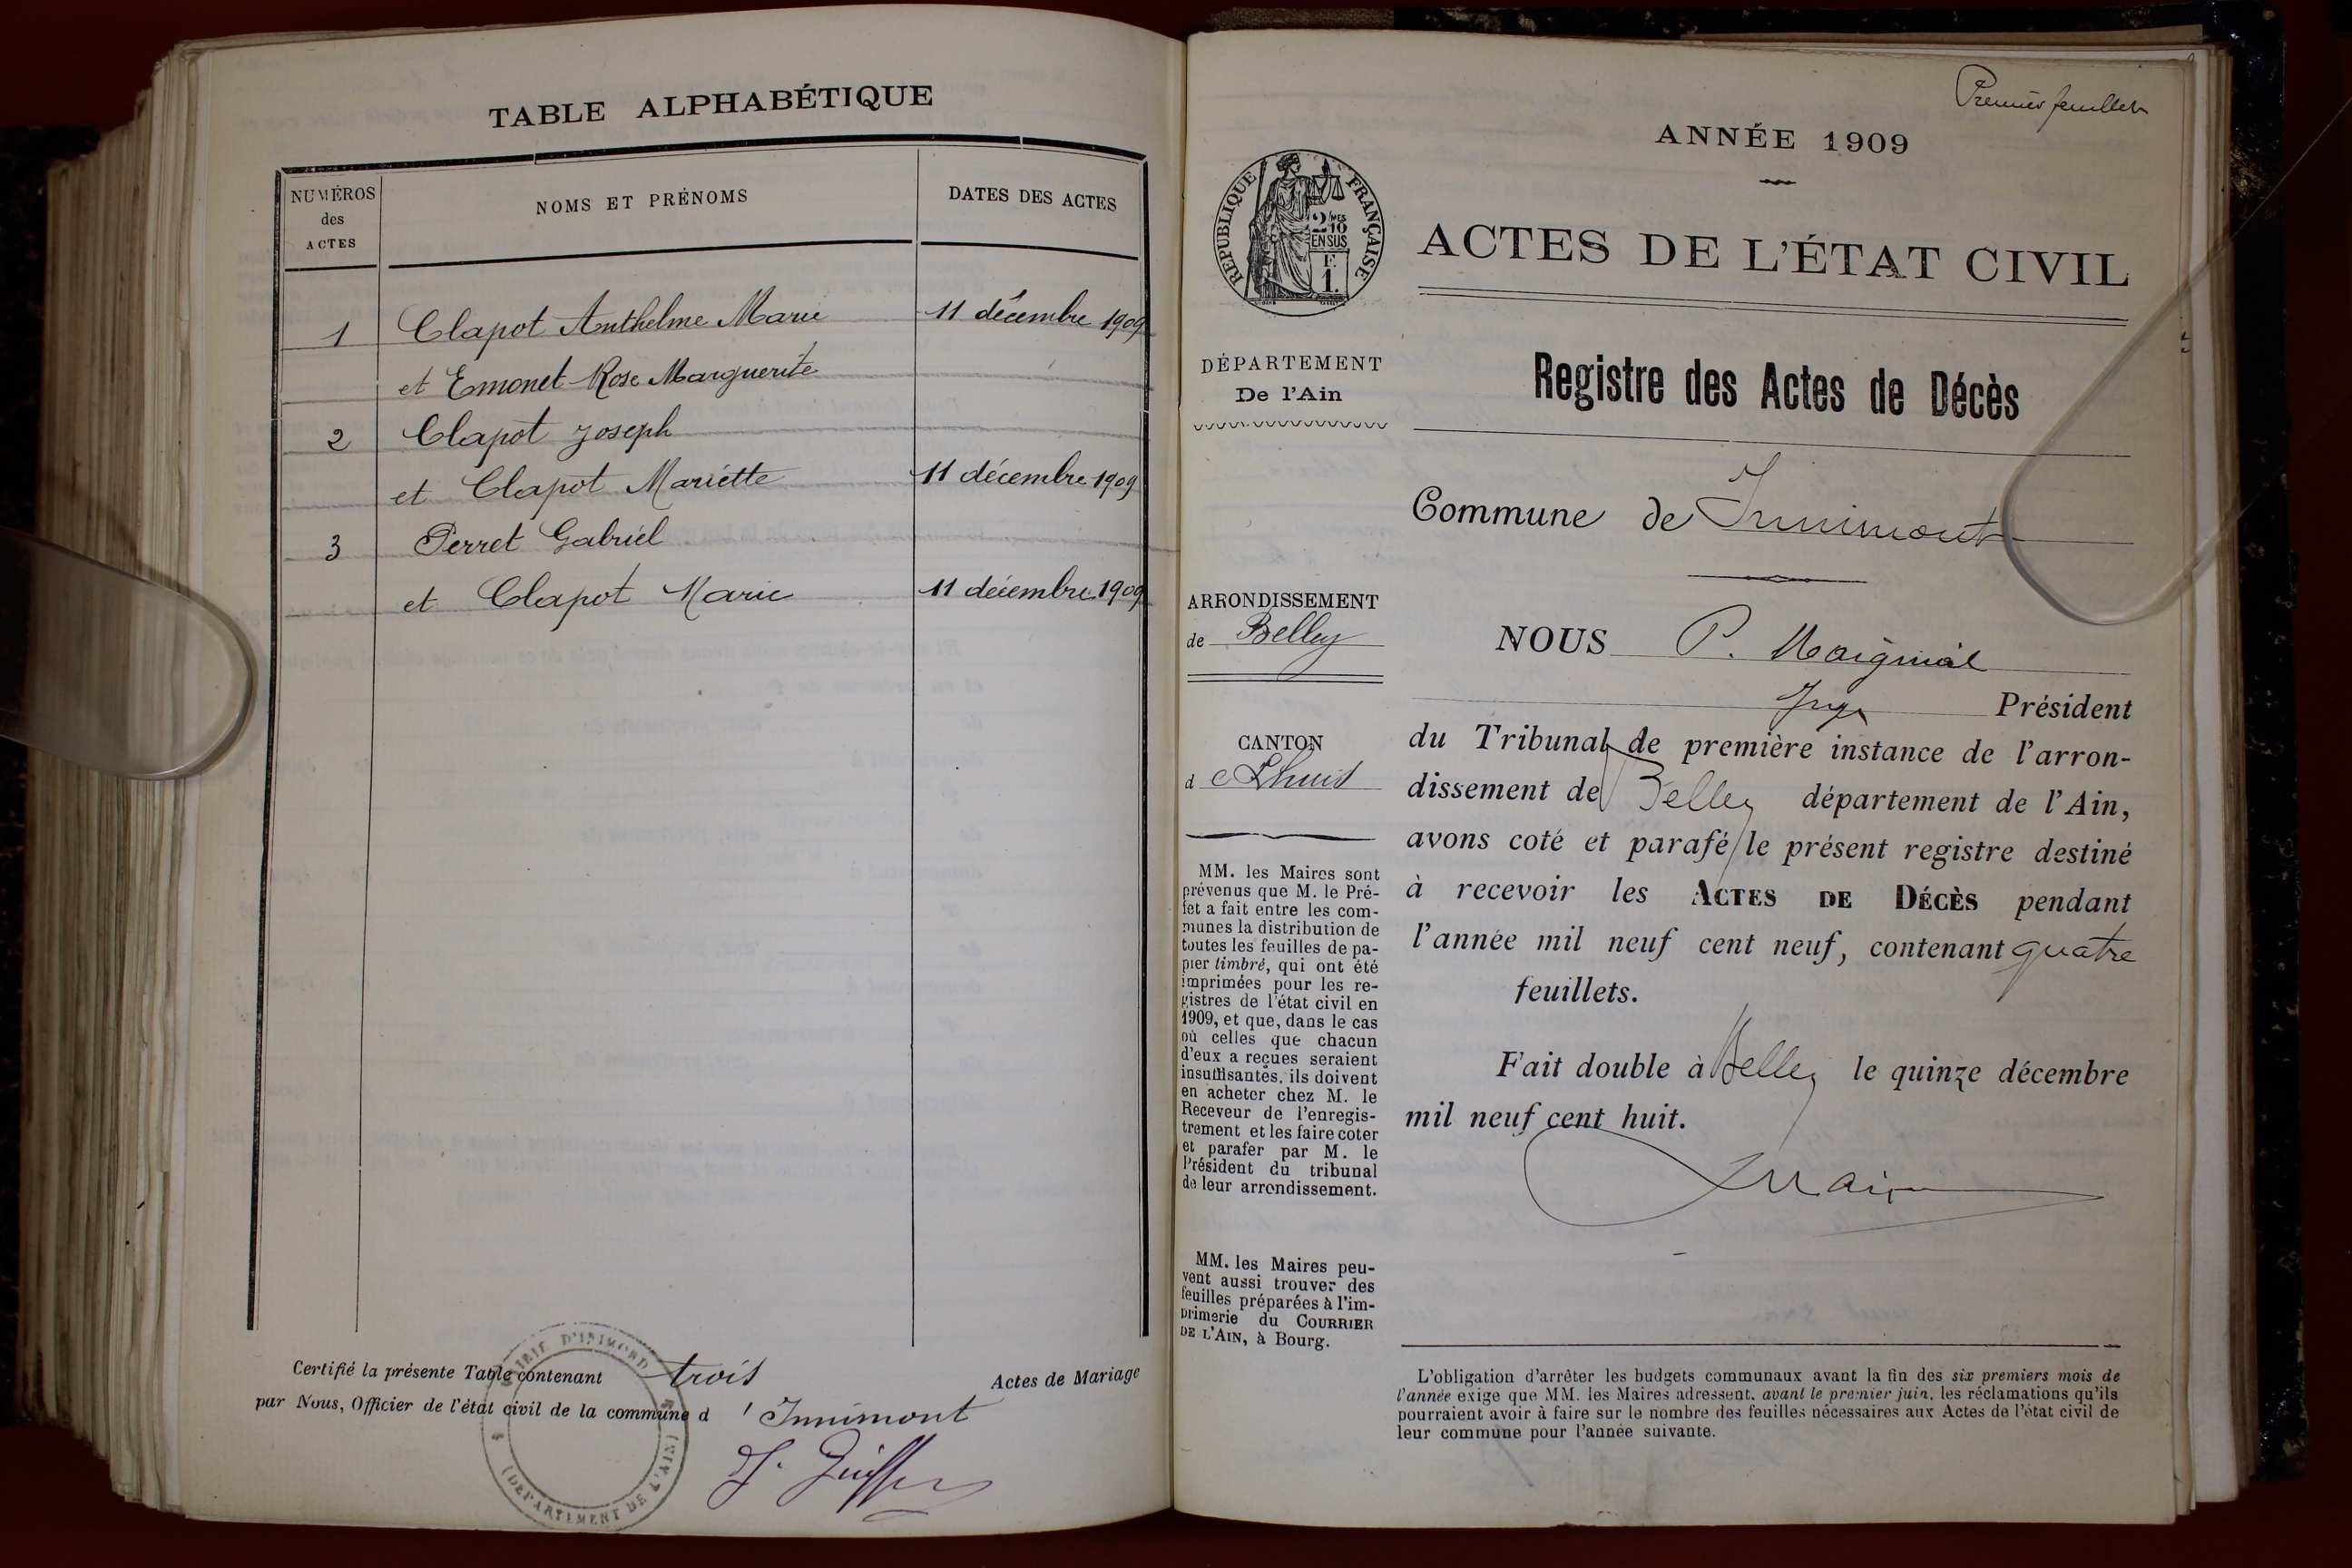 TABLE ALPHABÉTIQUE
NUMÉROS
des
ACTES
NOMS ET PRÉNOMS
DATES DES ACTES
1 Clapot Anthelme Marie 11 décembre 1909
et Emonet Rose Marguerite
2 Clapot Joseph
et Clapot Mariette 11 décembre 1909
3 Perret Gabriel
et Clapot Marie 11 décembre 1909
Certifié la présente Table contenant trois Actes de Mariage
par Nous, Officier de l'état civil de la commune d'Innimont
MAIRIE D'INIMOND
(DÉPARTEMENT DE L'AIN)
Premier feuillet
ANNÉE 1909
RÉPUBLIQUE FRANÇAISE
2/10
EN SUS
F.
1.
ACTES DE L'ÉTAT CIVIL
DÉPARTEMENT
De l'Ain
ARRONDISSEMENT
de Belley
CANTON
de Lhuis
MM. les Maires sont
prévenus que M. le Pré-
fet a fait entre les com-
munes la distribution de
toutes les feuilles de pa-
pier timbré, qui ont été
imprimées pour les re-
gistres de l'état civil en
1909, et que, dans le cas
où celles que chacun
d'eux a reçues seraient
insuffisantes, ils doivent
en acheter chez M. le
Receveur de l'enregis-
trement et les faire coter
et parafer par M. le
Président du tribunal
de leur arrondissement.
MM. les Maires peu-
vent aussi trouver des
feuilles préparées à l'im-
primerie du COURRIER
DE L'AIN, à Bourg.
Registre des Actes de Décès
Commune de Innimont
NOUS P. Maignial
Juge Président
du Tribunal de première instance de l'arron-
dissement de Belley département de l'Ain,
avons coté et parafé le présent registre destiné
à recevoir les ACTES DE DÉCÈS pendant
l'année mil neuf cent neuf, contenant quatre
feuillets.
Fait double à Belley le quinze décembre
mil neuf cent huit.
L'obligation d'arrêter les budgets communaux avant la fin des six premiers mois de
l'année exige que MM. les Maires adressent, avant le premier juin, les réclamations qu'ils
pourraient avoir à faire sur le nombre des feuilles nécessaires aux Actes de l'état civil de
leur commune pour l'année suivante.